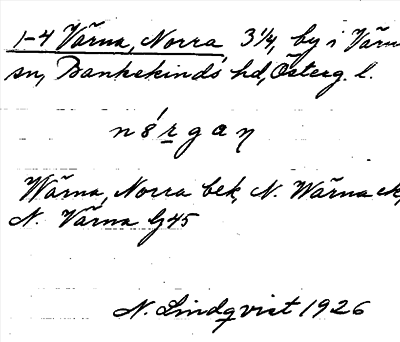 1-4 Värna, Norra 3 1/4, by i Värna
sn, Bankekinds hd, Österg. l.
Wärna, Norra bek, N. Wärna ek,
N. Värna G45
N. Lindqvist 1926